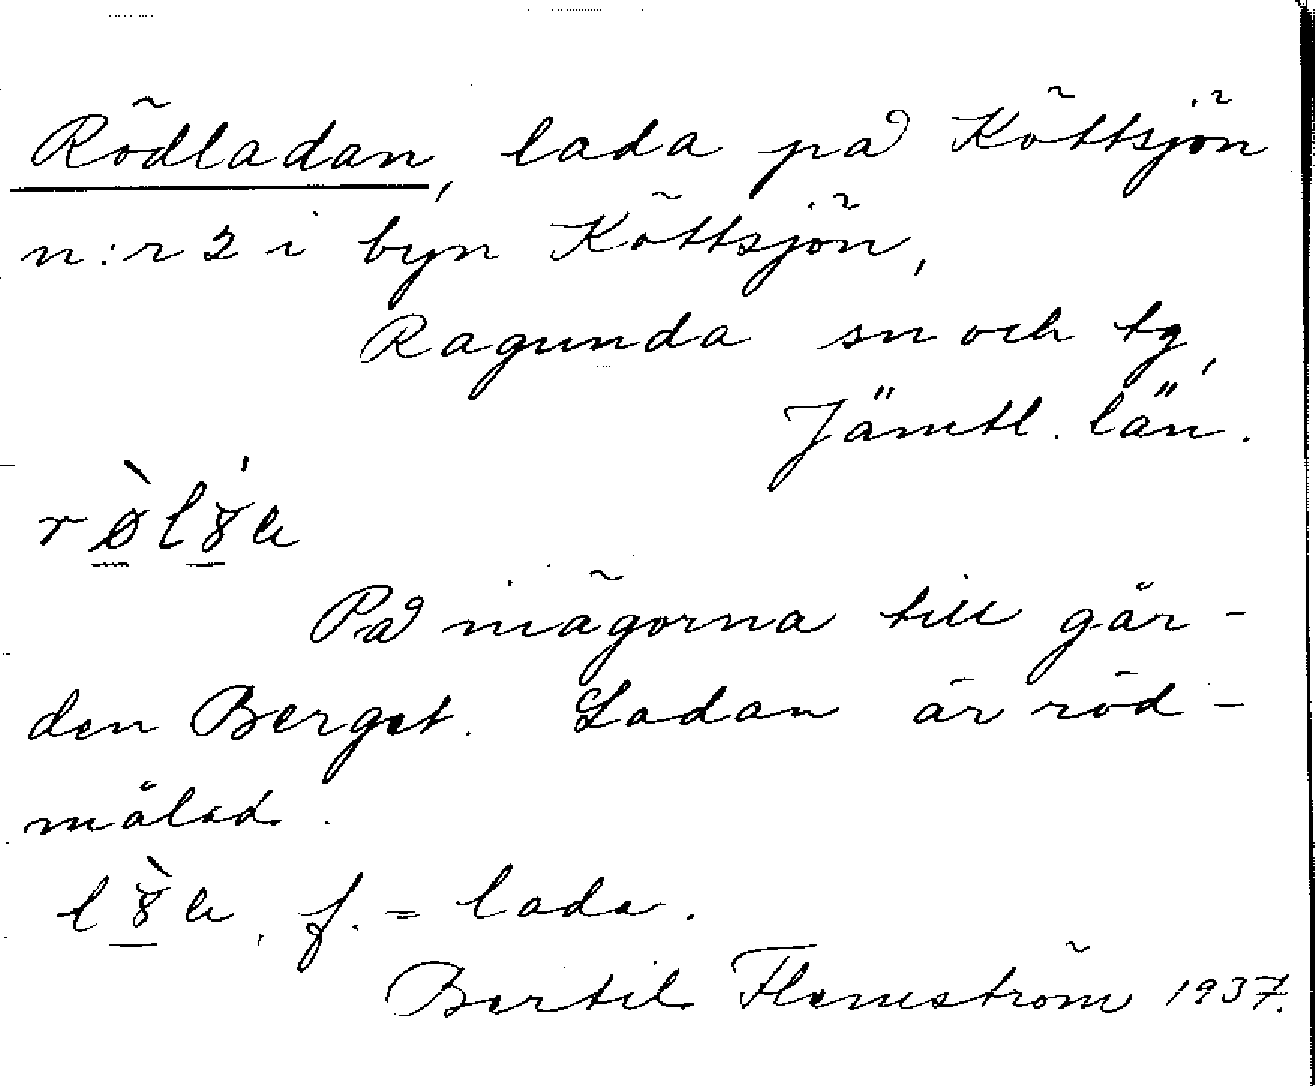 Rödladan, lada på Köttsjön
n:r 2 i byn Köttsjön,
Ragunda sn och tg,
Jämtl. län.
På inägorna till går-
den Berget. Ladan är röd-
målad.
f. = lada.
Bertil Flemström 1937.